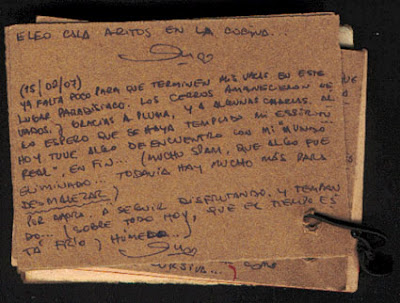 ELEO CALA ARITOS EN LA COCINA...
(15/02/07)
YA FALTA POCO PARA QUE TERMINEN MIS VACAS EN ESTE
LUGAR PARADISÍACO. LOS CERROS AMANECIERON DE
GRACIAS A PLUMA, Y A ALGUNAS CHARLAS, AL
VADOS,
LO ESPERO QUE SE HAYA TEMPLADO MI ESPÍRITU...
HOY TUVE ALGO DE ENCUENTRO CON MI MUNDO
REAL", EN FIN... (MUCHO SPAM, QUE ALGO FUE
ELIMINADO... TODAVÍA HAY MUCHO MÁS PARA
DESMALEZAR)
POR AHORA A SEGUIR DISFRUTANDO Y TEMPLAN
DO... (SOBRE TODO HOY, QUE EL TIEMPO ES
TÁ FRÍO Y HÚMEDO...)